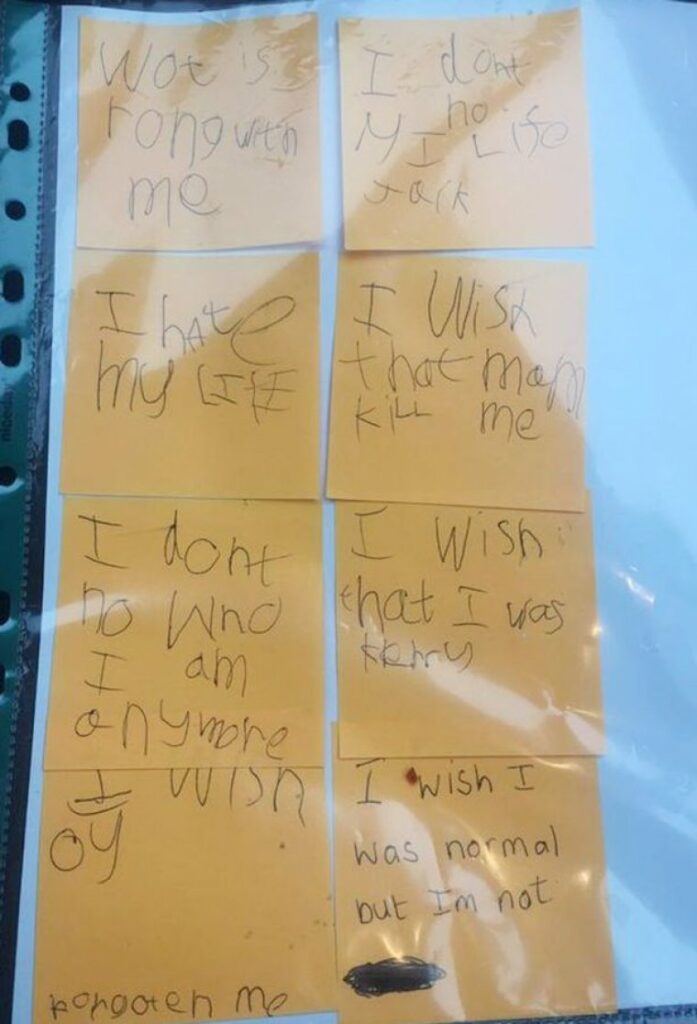 Wot is
rong with
me
I dont
no
My I Life
Jack
I hate
my LIFE
I Wish
that mam
kill me
I dont
no who
I am
anymore
I Wish
that I was
kerry
I Wish
oy
me
I wish I
was normal
but Im not